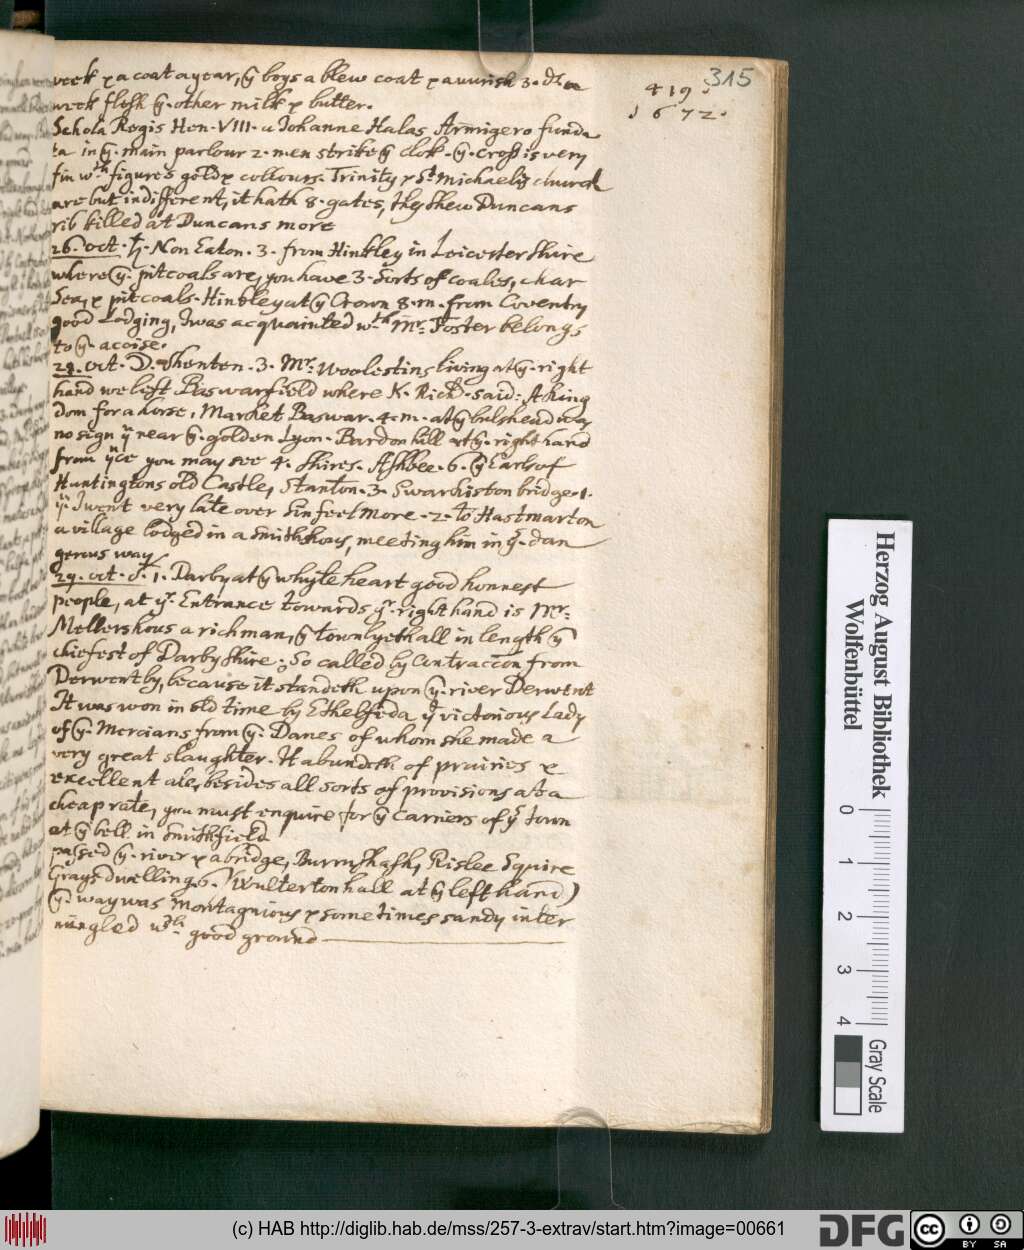 315
419.
1672.
week & a coat a year, ye boys a blew coat &
week flesh ye other milk & butter.
Schola Regis Hen. VIII. a Johanne Halas Armigero funda
ta in ye main parlour 2. men strike ye clok. ye Cross is very
fin wth figures gold & collours. Trinity & St Michaelis church
are but indifferent, it hath 8. gates, they shew Duncans
rib killed at Duncans more
26. oct. ♄. Non Eaton. 3. from Hinkley in Leicester shire
where ye pitcoals are, you have 3. Sorts of coales, char
Sea, & pitcoals. Hinkley at ye Crown 8. m. from Coventry
good Lodging, I was acquainted wth Mr. Foster belongs
to ye acoise.
oct. Shenton. 3. Mr. Woolestins living at ye right
hand we left Baswarfield where K. Richd. said: A King
dom for a horse, Market Baswar. 4. m. at ye bulshead was
no sign yn near ye golden Lyon. Bardon hill at ye right hand
from yce you may see 4. shires. Ashbee. 6. ye Earls of
Huntingtons old Castle, Stanton. 3. Swarkiston bridge. 1.
yn I went very late over Sinfeel More. 2. to Hastmarton
a village lodged in a smiths hous, meeting him in ye dan
gerous way
29. oct. ♂. 1. Darby at ye whyte heart good honnest
people, at ye Entrance towards ye right hand is Mr.
Mellers hous a rich man, ye town lyeth all in length ye
chiefest of Darbyshire: So called by Contraccon from
Derwentby, because it standeth upon ye river Derwent
It was won in old time by Ethelfleda ye victorious Lady
of ye Mercians from ye Danes of whom she made a
very great slaughter. It abundeth of prairies &
excellent ale, besides all sorts of provisions at a
cheap rate, you must enquire for ye Carriers of ye town
at ye bell in Smithfield
passed ye river & a bridge, Burrnshash, Rislee Squire
Grays dwelling. 6. (Wulterton hall at ye left hand)
ye way was Montagnious & sometimes sandy inter
mingled wth good ground
Herzog August Bibliothek
Wolfenbüttel
0 1 2 3 4
Gray Scale
(c) HAB http://diglib.hab.de/mss/257-3-extrav/start.htm?image=00661
DFG
cc BY SA